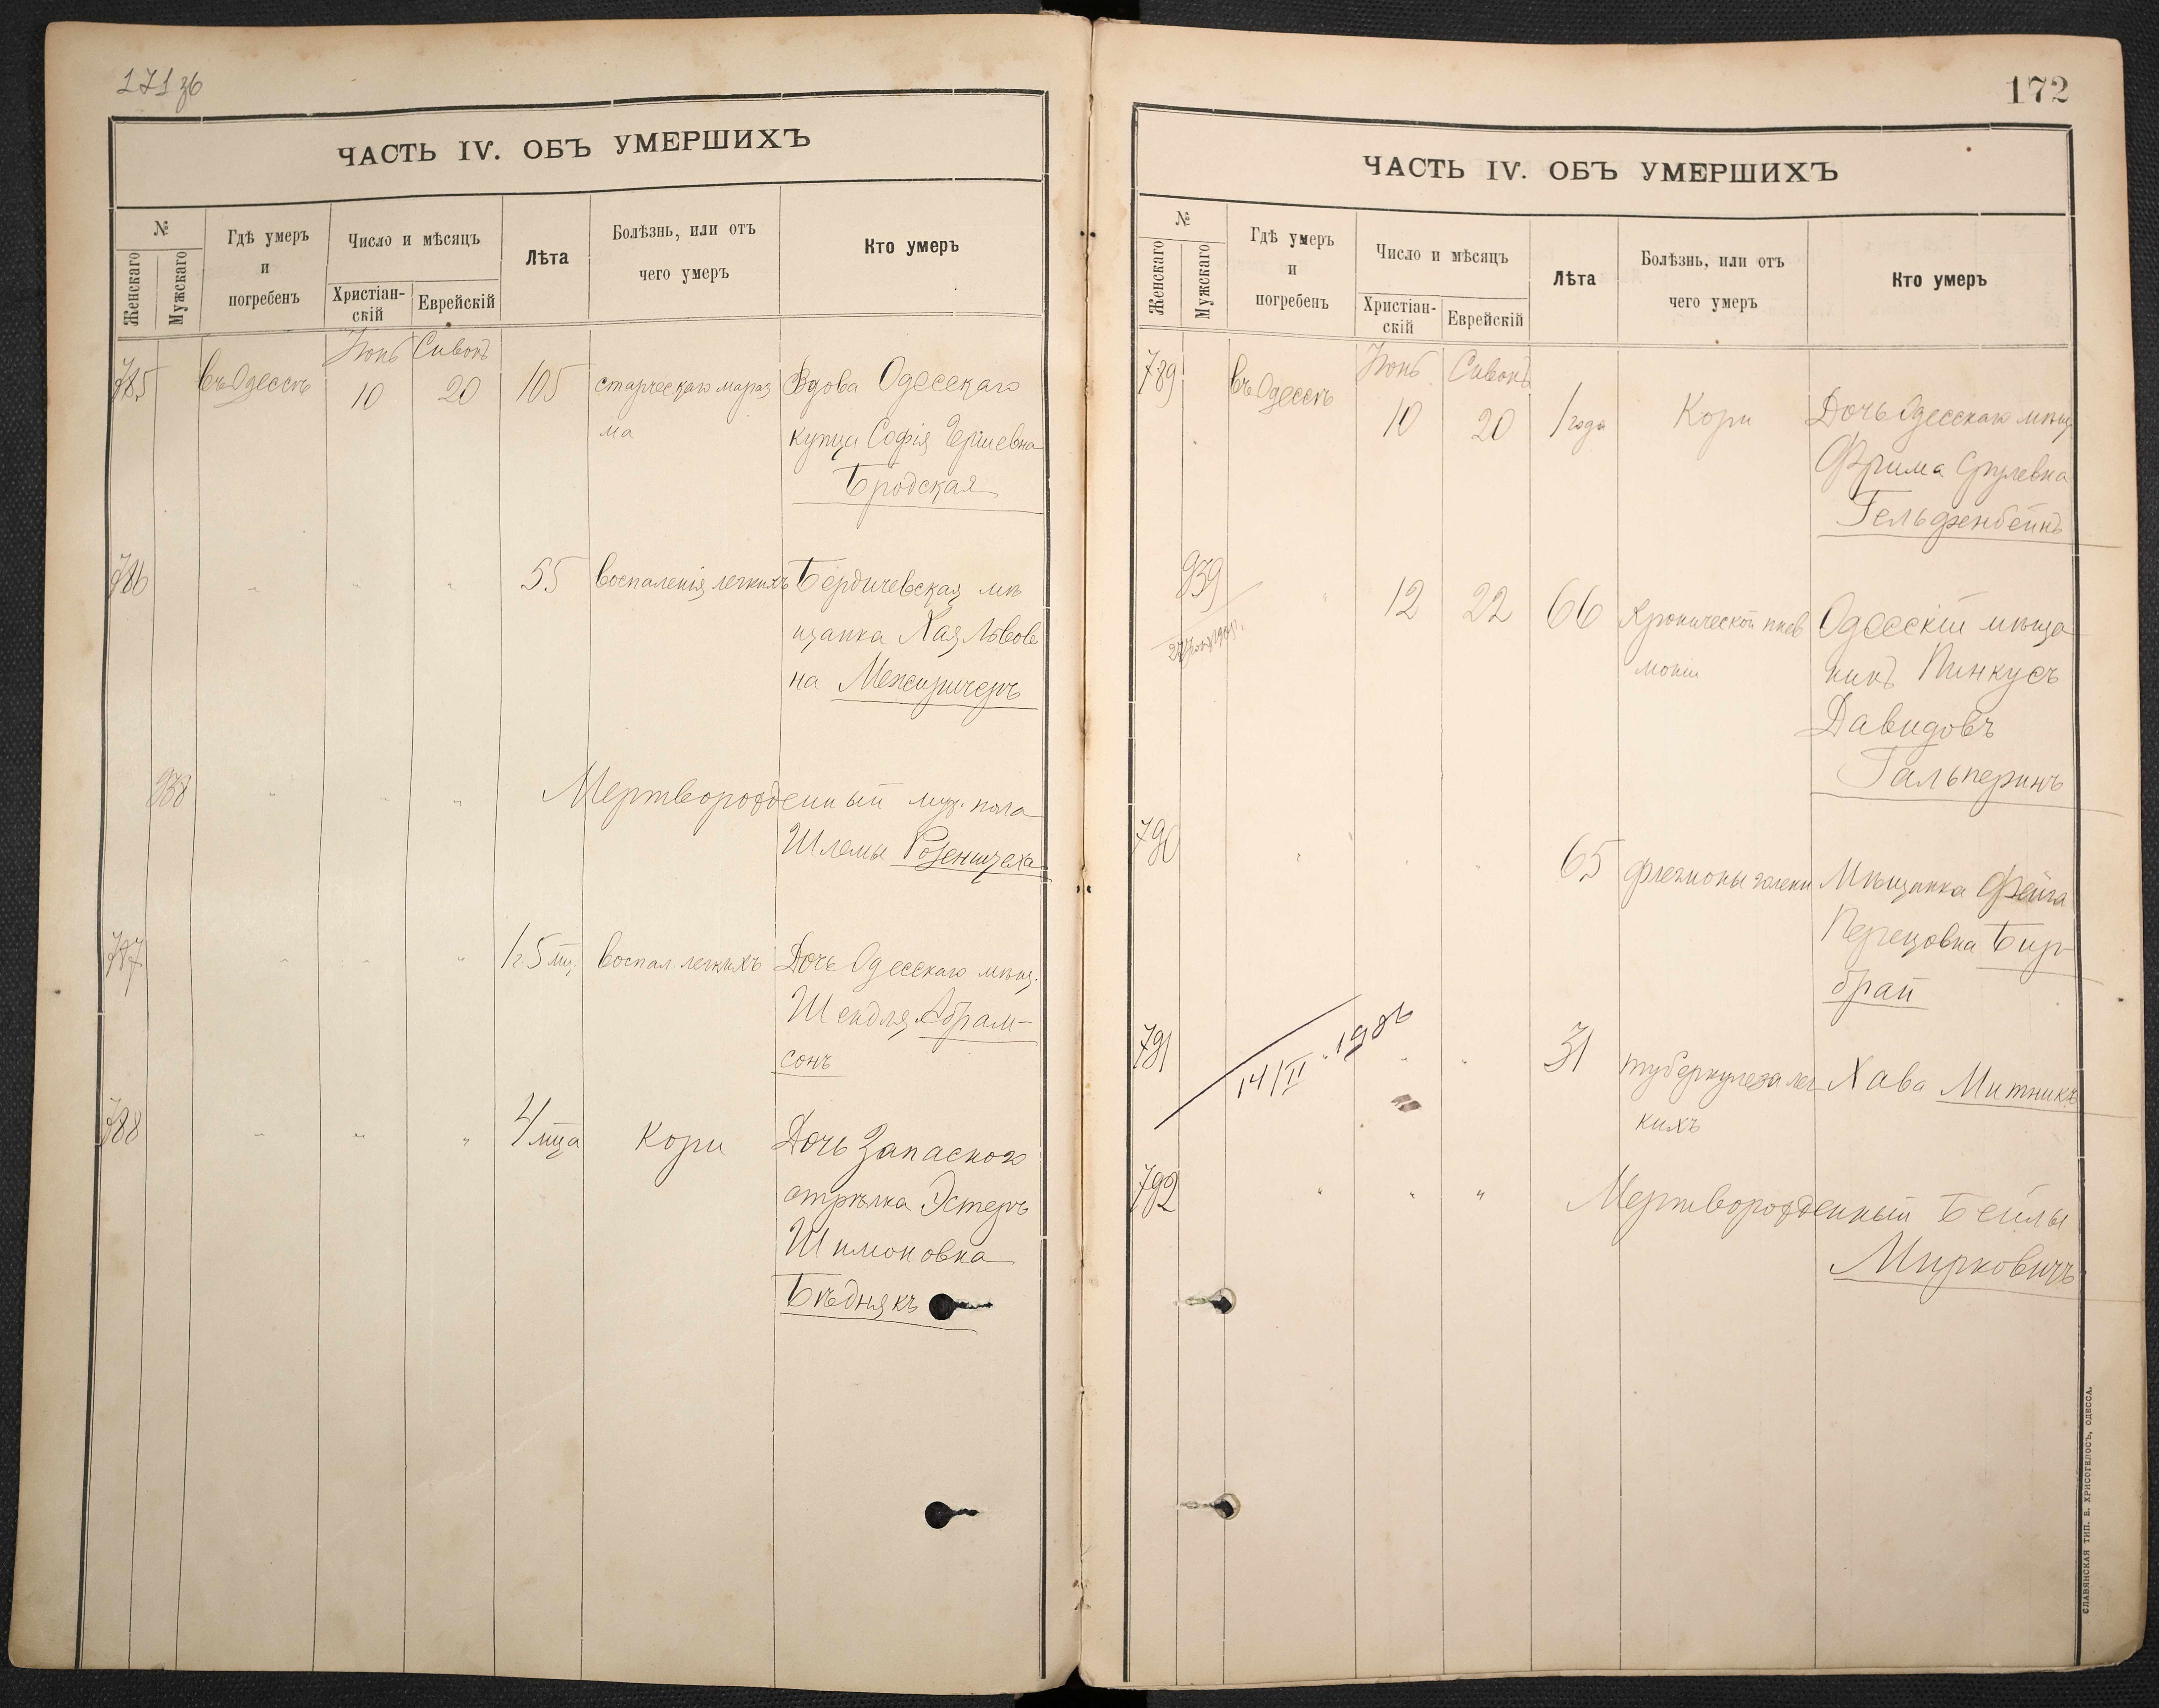 171зб
ЧАСТЬ IV. ОБЪ УМЕРШИХЪ
№
Женскаго
Мужскаго
Гдѣ умеръ
и
погребенъ
Число и мѣсяцъ
Христіан-
скій
Еврейскій
Лѣта
Болѣзнь, или отъ
чего умеръ
Кто умеръ
Іюнь Сивонъ
785 въ Одессѣ 10 20 105 старческаго мараз Вдова Одесскаго
ма купца Софія Гершевна
Бродская
786 " " " 55 воспаленія легкихъ Бердичевская мѣ
щанка Хая Львов
на Межиричеръ
938 " " " Мертворожденный муж. пола
Шлемы
787 " " " 1г. 5 мц. воспал легкихъ Дочь Одесскаго мѣщ.
Шендля Абрам-
сонъ
788 " " " 4 мца Кори Дочь Запаснаго
стрѣлка Эстеръ
Шимоновна
Бѣднякъ
172
ЧАСТЬ IV. ОБЪ УМЕРШИХЪ
№
Женскаго
Мужскаго
Гдѣ умеръ
и
погребенъ
Число и мѣсяцъ
Христіан-
скій
Еврейскій
Лѣта
Болѣзнь, или отъ
чего умеръ
Кто умеръ
Іюнь Сивонъ
789 въ Одессѣ 10 20 1 года Кори Дочь Одесскаго мѣщ
Фрима Срулевна
Гельфенбейнъ
939 " 12 22 66 Хронической пнев Одесскій мѣща
моніи нинъ Пинкусъ
Давидовъ
Гальперинъ
790 " " " 65 флегмоны голени Мѣщанка Фейга
Перецовна Бир-
браи
791 14/II 1986 " " " 31 туберкулеза лег Хава Митникъ
кихъ
792 " " " Мертворожденный Бейлы
Мирковичъ
СЛАВЯНСКАЯ ТИП. Е. ХРИСОГЕЛОСЪ, ОДЕССА.